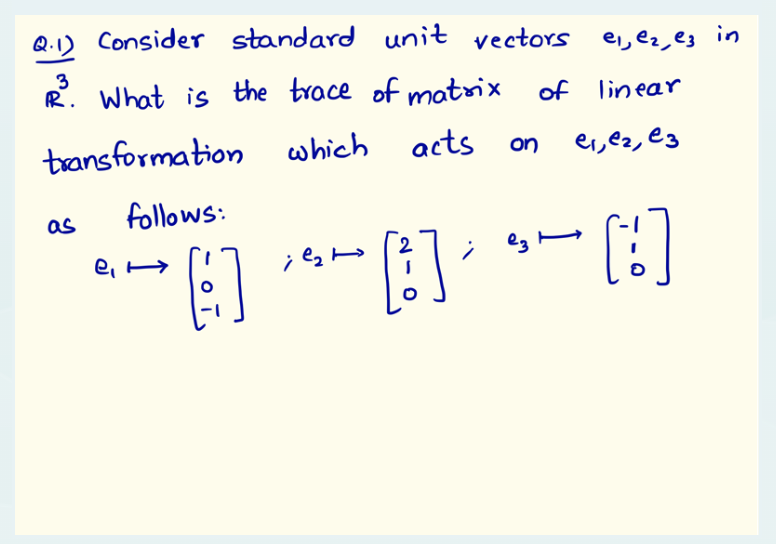 Q.1) Consider standard unit vectors e₁, e₂, e₃ in
ℝ³. What is the trace of matrix of linear
transformation which acts on e₁, e₂, e₃
as follows:
e₁ ↦ [1 0 -1] ; e₂ ↦ [2 1 0] ; e₃ ↦ [-1 1 0]